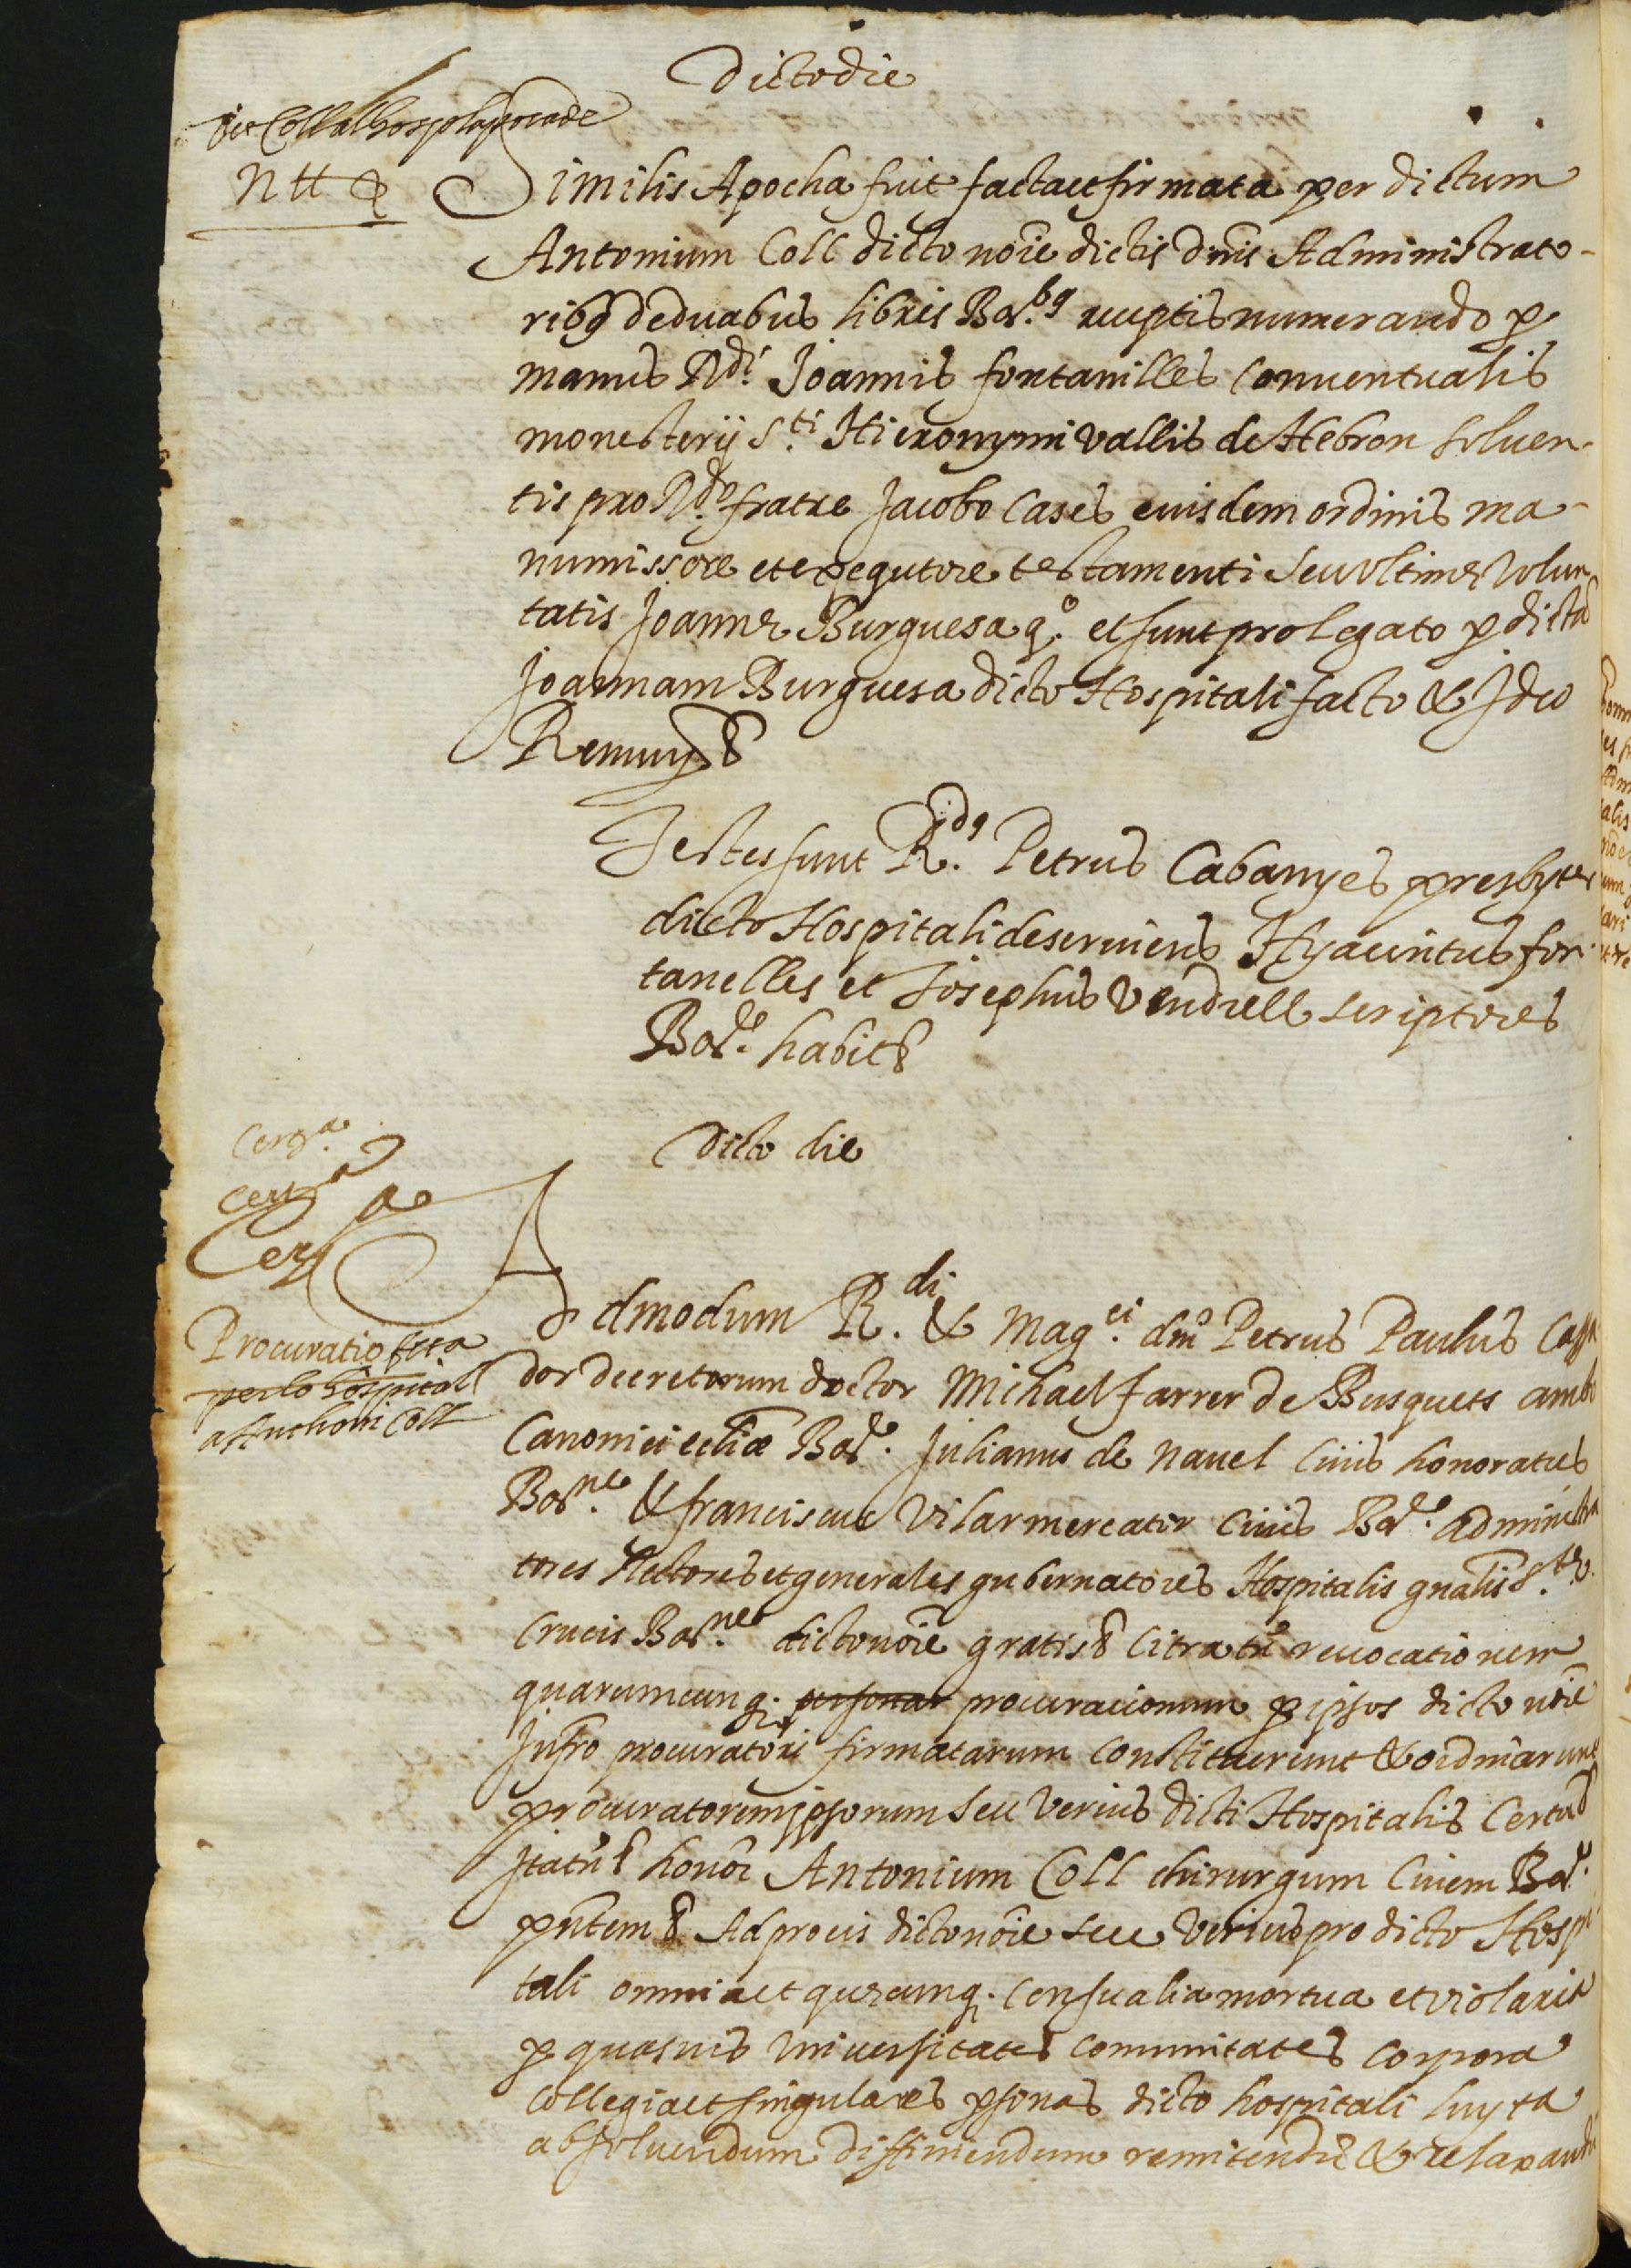 Dicto die
Similis Apocha fuit facta et firmata per dictum
Antonium Coll dicto noĩe dictis dñis Administrato-
ribꝯ de duabus libris Bar.bꝯ receptis numerando ꝑ
manus Rdi. Joannis fontanilles conuentualis
monesterij S.ti Hieronymi vallis de Hebron soluen-
tis pro Rdo. fratre Jacobo Cases eiusdem ordinis ma-
numissore et exequtore testamenti seu ultimę volun
tatis Joannę Burguesa q.o et sunt pro legato ꝑ dictā
Joannam Burguesa dicto Hospitali facto & Ideo
Renun &
Testes sunt R.dꝯ Petrus Cabanyes presbyter
dicto Hospitali deseruiens Hyacintus fon-
tanelles et Josephus Vendrell scriptores
Bar.e habit &
Dicto die
Cera.
Procuratio feta
per lo hospital
a Anthoni Coll
Admodum R.di & Mag.ci dnĩ Petrus Paulus Cassa
dor decretorum doctor Michael farrer de Busquets ambo
Canonici ecliæ Bar.e Julianus de Nauel Ciuis honoratus
Bar.ne & franciscus Vilar mercator Ciuis Bar.e administra
tores Rectores et generales gubernatores Hospitalis gñalis S.tę
Crucis Bar.ne dicto noĩe gratis & Citra tñ reuocationem
quarumcunq. personar procuracionum ꝑ ipsos dicto noĩe
Infro procuratori firmatarum Constituerunt & ordinarunt
procuratorem ipsorum seu verius dicti Hospitalis Certū
Itatñ & honor Antonium Coll chirurgum Ciuem Bar.e
pñtem & Ad pro eis dicto noĩe seu verius pro dicto Hospi
tali omnia et quęcunq. Censualia mortua et violaria
ꝑ quasuis Vniuersitates Comunitates Corpora
Collegia et singulares ꝑsonas dicto hospitali luyta
absoluendum diffiniendum remitendū & relaxandū